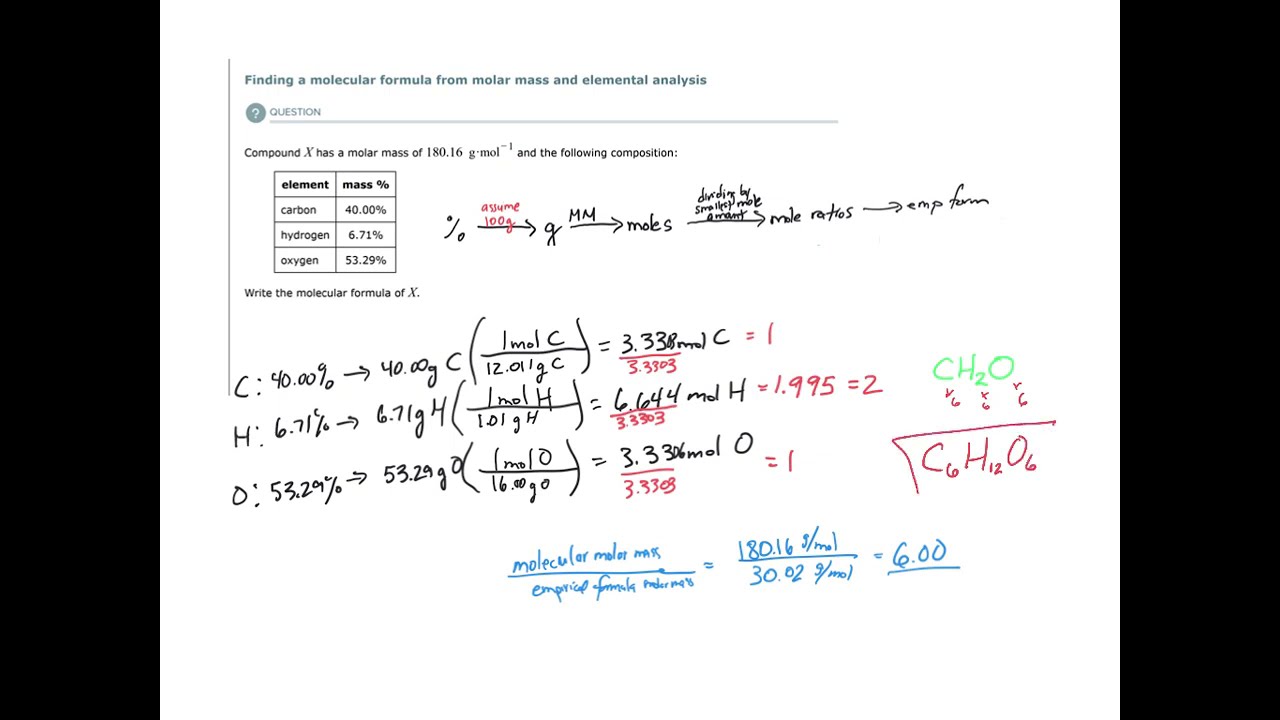 Finding a molecular formula from molar mass and elemental analysis
? QUESTION
Compound X has a molar mass of 180.16 g·mol⁻¹ and the following composition:
element mass %
carbon 40.00%
hydrogen 6.71%
oxygen 53.29%
assume
100g
% → g
MM
→ moles
dividing by
smallest mole
amount
→ mole ratios → emp form
Write the molecular formula of X.
C: 40.00% → 40.00g C (1 mol C / 12.011g C) = 3.338 mol C / 3.3303 = 1
H: 6.71% → 6.71g H (1 mol H / 1.01 g H) = 6.644 mol H / 3.3303 = 1.995 = 2
O: 53.29% → 53.29g O (1 mol O / 16.00 g O) = 3.3306 mol O / 3.3303 = 1
CH₂O
x6 x6 x6
C₆H₁₂O₆
molecular molar mass / empirical formula molar mass = 180.16 g/mol / 30.02 g/mol = 6.00